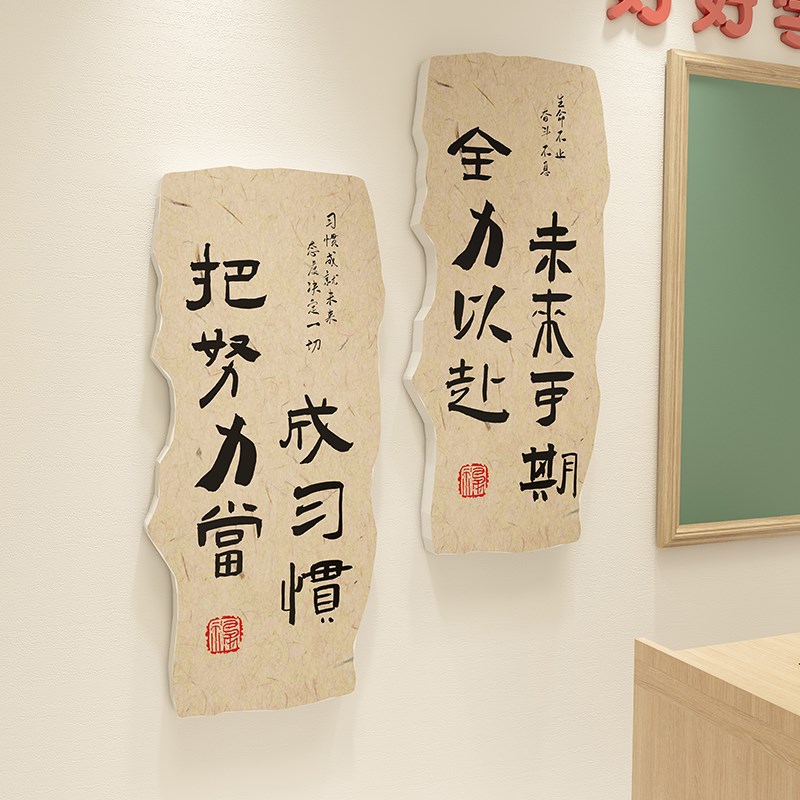 好好
把努力當
成习慣
习惯成就未来
态度决定一切
全力以赴
未來可期
生命不止
奋斗不息